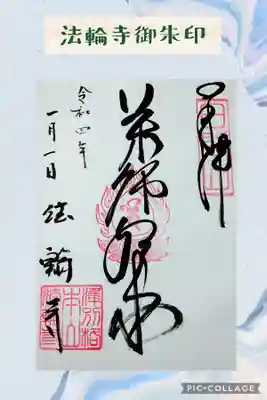 法輪寺御朱印
奉拝
薬師如来
令和四年
一月一日
法輪寺
PIC-COLLAGE